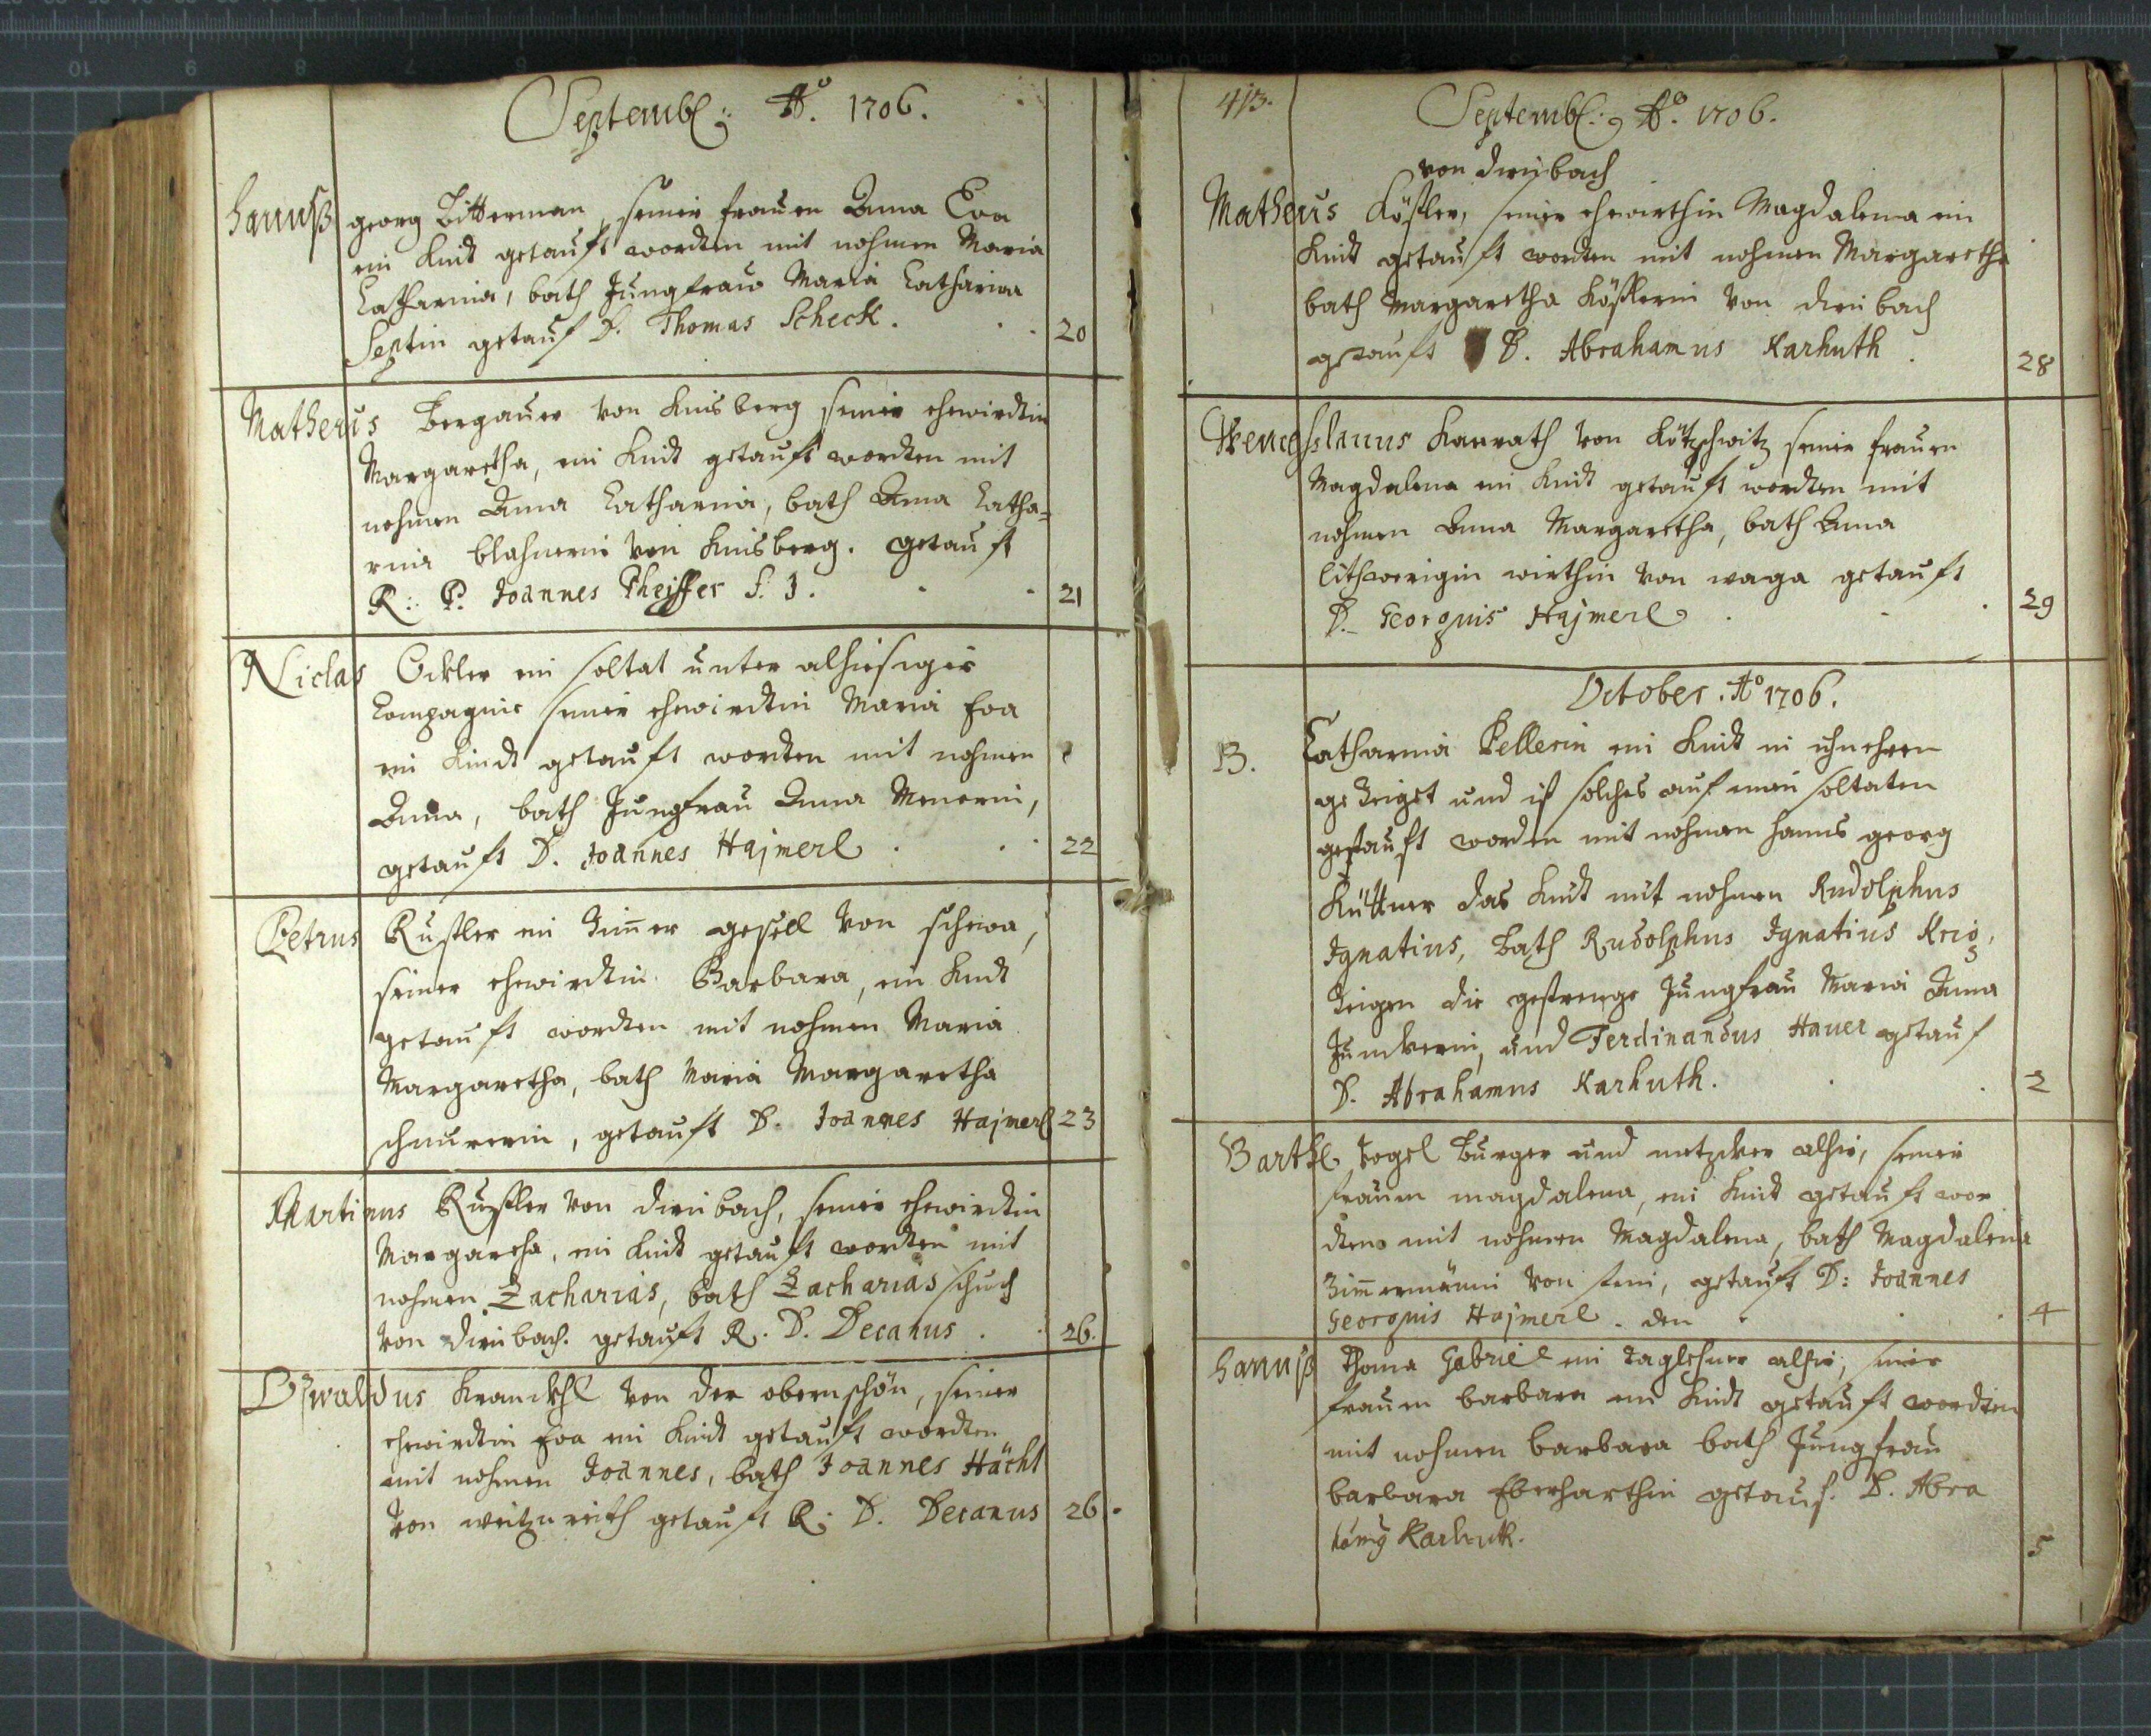 Septemb: Aõ. 1706.
Hannß georg Bitterman, seiner frauen Anna Eva
ein Kindt getaufft wordten mit nahmen Maria
Catharina, bath Jungfraw Maria Catharina
getauf D. Thomas Scheck. 20
Matheus Bergauer von Kinsberg seiner ehewirdtin
Margaretha, ein Kindt getaufft wordten mit
nahmen Anna Catharina, bath Anna Catha=
rina von Kinsberg. getaufft
R: P. Joannes Pheiffer S. J. 21
Niclas Ockler ein soltat unter alhiesiger
Compagnie seiner ehewirdtin Maria Eva
ein Kindt getaufft wordten mit nahmen
Anna, bath Jungfrau Anna
getaufft D. Joannes Hajmerl 22
Petrus Rustler ein gesell von
seiner ehewirdtin Barbara, ein Kindt
getaufft wordten mit nahmen Maria
Margaretha, bath Maria Margaretha
getaufft D. Joannes Hajmerl 23
Martinus Rustler von seiner ehewirdtin
Margareha, ein Kindt getaufft wordten mit
nahmen Zacharias, bath Zacharias schuch
von getaufft R. D. Decanus 26.
Oswaldus von der obernschön, seiner
ehewirdtin Eva ein Kindt getaufft wordten
mit nahmen Joannes, bath Joannes Hächl
von getaufft R: D. Decanus 26.
413.
Septemb: Aõ. 1706.
von
Matheus Kößler, seiner ehewirthin Magdalena ein
Kindt getaufft wordten mit nahmen Margaretha
bath Margaretha Kößlerin von
getaufft D. Abrahamus Karhuth 28
Wenceslauus von seiner frauen
Magdalena ein Kindt getaufft wordten mit
nahmen Anna Margaretha, bath Anna
wirthin von getaufft
D. Georgius Hajmerl 29
October. Aõ 1706.
B. Catharina Pellerin ein Kindt in
und ist solches auf einen soltaten
getaufft worden mit nahmen Hanns georg
Küttner das Kindt mit nahmen Rudolphus
Ignatius, bath Rudolphus Ignatius
Zeigen die gestrenge Jungfrau Maria Anna
und Ferdinandus Hauer getauf
D. Abrahamus Karhuth. 2
Barthl Vogel Burger und alhir, seiner
frauen magdalena, ein Kindt getaufft wor
dten mit nahmen Magdalena, bath Magdalena
von getaufft D: Joannes
Georgius Hajmerl. den 4
Hannß Thoma Gabriel ein taglehner alhir, seiner
frauen barbara ein Kindt getaufft wordten
mit nahmen barbara bath Jungfrau
barbara Eberharthin getauf. D. Abra
hamg Karhut. 5